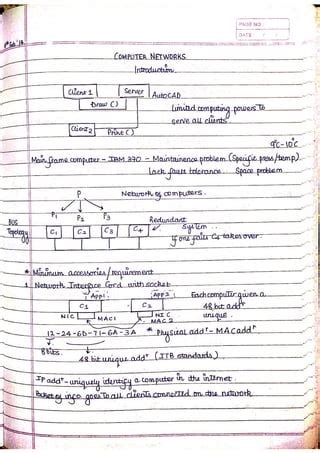 PAGE NO.
DATE
COMPUTER NETWORKS
Introduction.
Client 1
Server
AutoCAD
Draw ()
Limited computing powers to
serve all clients.
Client 2
Print ()
9°C-10°C
Main frame computer - IBM 370 - Maintainence problem (Specific press/temp)
Lack fault tolerance. Space problem
P
Network of computers.
P1 P2 P3
Redundant
System
BUS
Topology
C1 C2 C3 C4
If one fails C4 takes over.
* Minimum accessories/requirment
1. Network Interface Card with socket
App1 App2
Each computer given a
C1 C2
48 bit addr
unique.
NIC MAC1 NIC MAC2
12-24-6b-71-6A-3A
* Physical addr - MAC addr
8 bits.
48 bit unique addr (ITB standards)
IP addr - uniquely identify a computer in the internet.
Packet of info goes to all clients connected on the network.